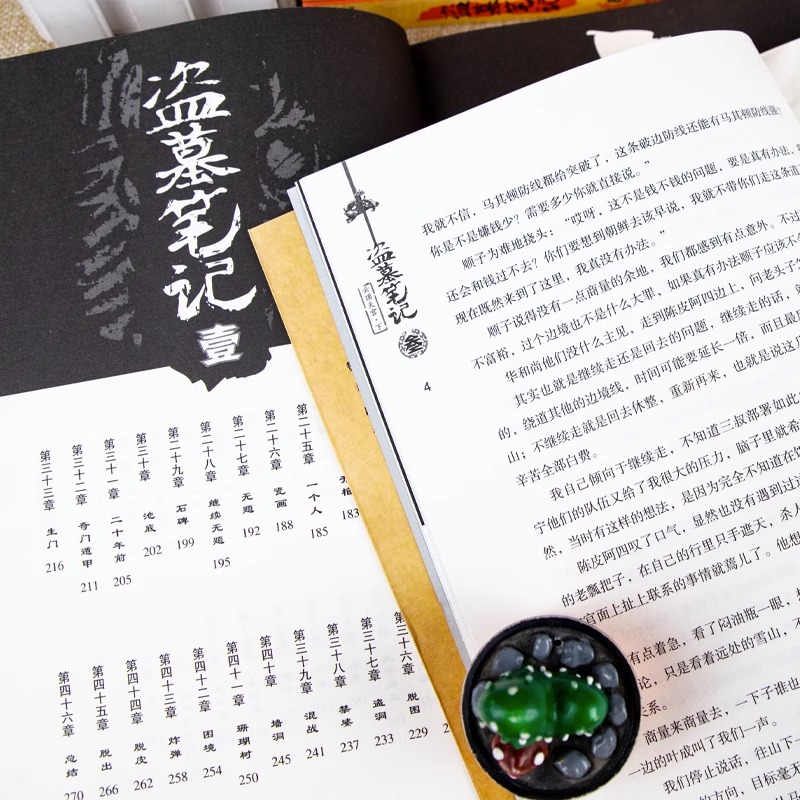 盗墓笔记
盗墓笔记
壹
第二十五章 一个人 185
第二十六章 瓷画 188
第二十七章 无题 192
第二十八章 继续无题 195
第二十九章 石碑 199
第三十章 池底 202
第三十一章 二十年前 205
第三十二章 奇门遁甲 211
第三十三章 生门 216
183
第三十六章 脱困 229
第三十七章 盗洞 233
第三十八章 禁婆 237
第三十九章 混战 241
第四十章 墙洞 245
第四十一章 珊瑚树 250
第四十二章 困境 254
第四十三章 炸弹 258
第四十四章 脱皮 262
第四十五章 脱出 266
第四十六章 总结 270
盗墓笔记
云顶天宫·下
叁
4
我就不信，马其顿防线都给突破了，这条破边防线还能有马其顿防线强？
你是不是嫌钱少？需要多少你就直接说。”
顺子为难地挠头：“哎呀，这不是钱不钱的问题，要是真有办法、
还会和钱过不去？你们要想到朝鲜去该早说，我就不带你们走这条道
现在既然来到了这里，我真没有办法。”
顺子说得没有一点商量的余地，我们都感到有点意外。不过
不富裕，过个边境也不是什么大罪，如果真有办法顺子应该不
华和尚他们没什么主见，走到陈皮阿四边上，问老头子
其实也就是继续走还是回去的问题，继续走的话，就
的，绕道其他的边境线，时间可能要延长一倍，而且最
山；不继续走就是回去休整，重新再来，也就是说这几
辛苦全部白费。
我自己倾向于继续走，不知道三叔部署如此
宁他们的队伍又给了我很大的压力，脑子里就希
然，当时有这样的想法，是因为完全不知道在
陈皮阿四叹了口气，显然也没有遇到过
的老瓢把子，在自己的行里只手遮天，杀人
官面上扯上联系的事情就蔫儿了。他想
有点着急，看了闷油瓶一眼，想
论，只是看着远处的雪山，不
关系。
商量来商量去，一下子谁也
一边的叶成叫了我们一声。
我们停止说话，往山下
的方向，目标毫无